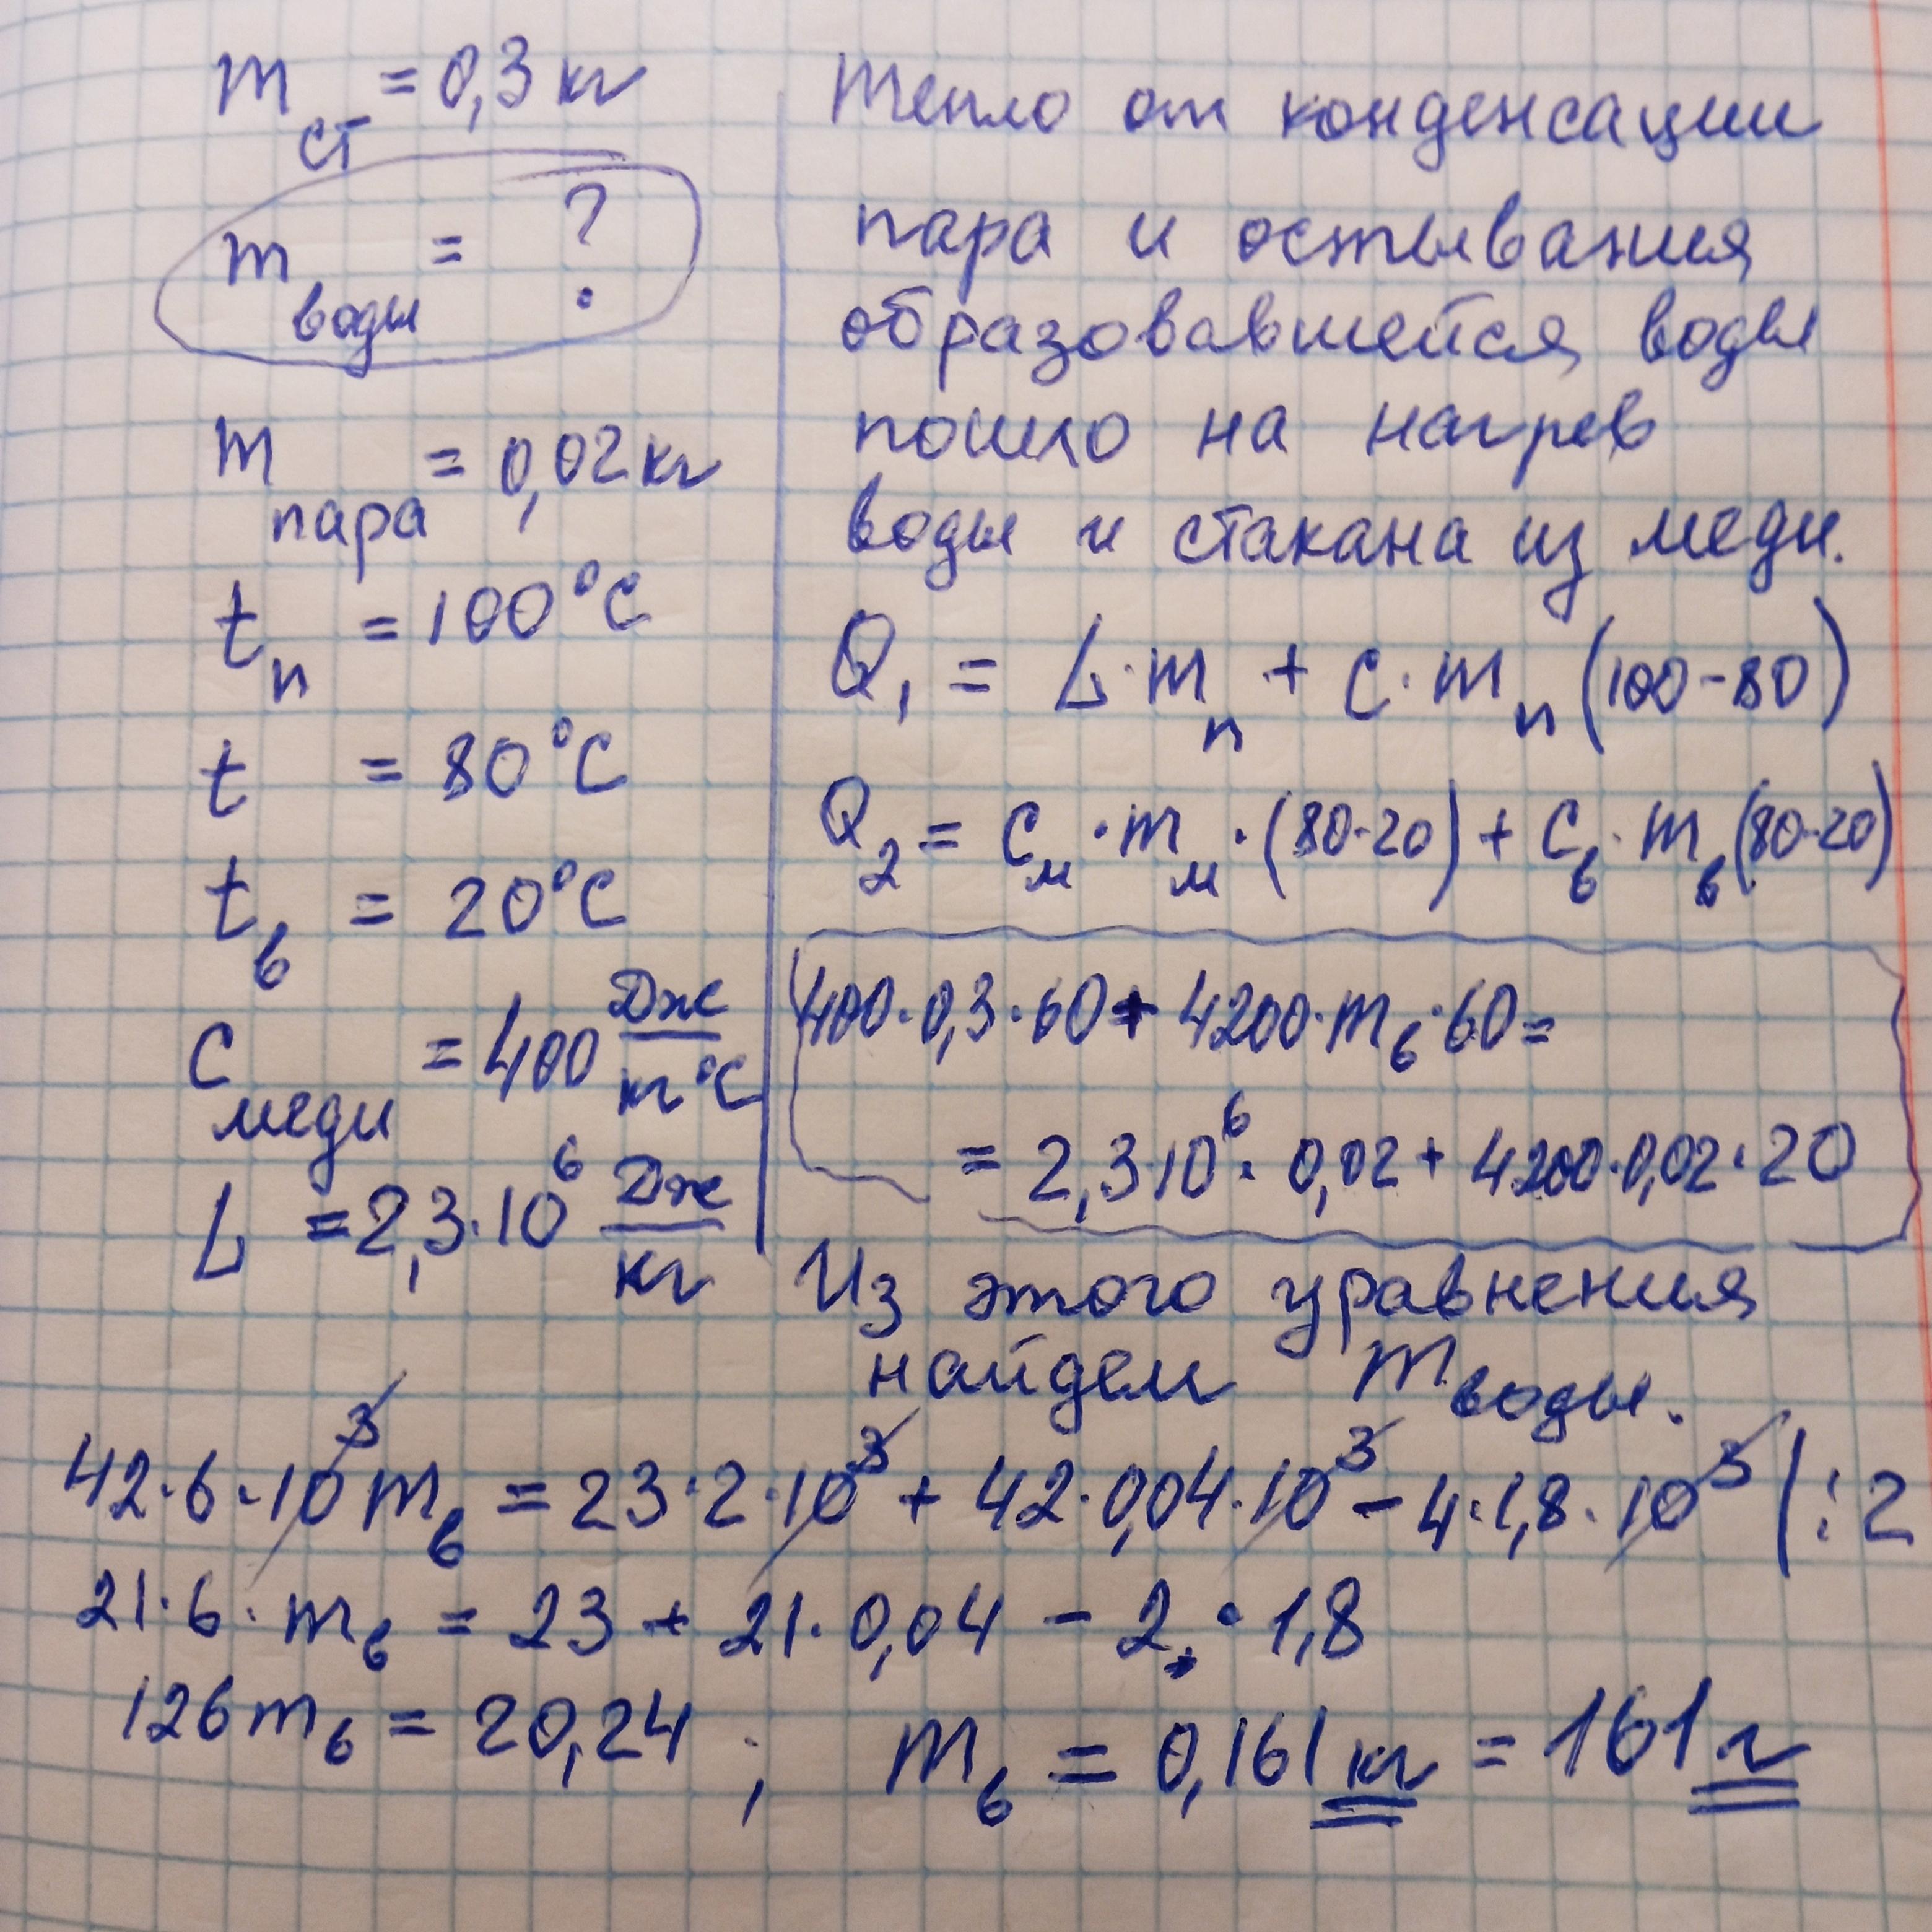 m ст = 0,3 кг
m воды = ?
m пара = 0,02 кг
t п = 100°C
t = 80°C
t в = 20°C
C меди = 400 Дж/кг°C
L = 2,3·10⁶ Дж/кг
Тепло от конденсации
пара и остывания
образовавшейся воды
пошло на нагрев
воды и стакана из меди.
Q₁ = L·m п + c·m п (100-80)
Q₂ = C м · m м · (80-20) + C в · m в (80-20)
400·0,3·60 + 4200·m в·60 =
= 2,3·10⁶·0,02 + 4200·0,02·20
Из этого уравнения
найдем m воды.
42·6·10³ m в = 23·2·10³ + 42·0,04·10³ - 4·1,8·10³ |:2
21·6·m в = 23 + 21·0,04 - 2·1,8
126 m в = 20,24 ; m в = 0,161 кг = 161 г